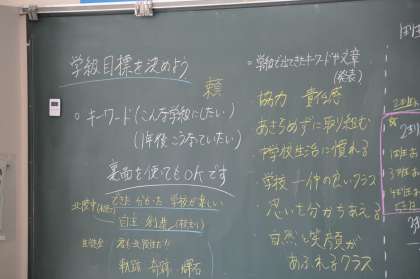 学級目標を決めよう
○キーワード(こんな学級にしたい)
(1年後こうなっていたい)
裏面を使ってもOKです
できた 分かった 学校が楽しい
自立 創造
軌跡 奇跡 輝石
○学級で出てきたキーワードや文章
(発表)
協力 責任感
あきらめずに取り組む
中学校生活に慣れる
学校一仲の良いクラス
思いを分かちあえる
自然と笑顔が
あふれるクラス